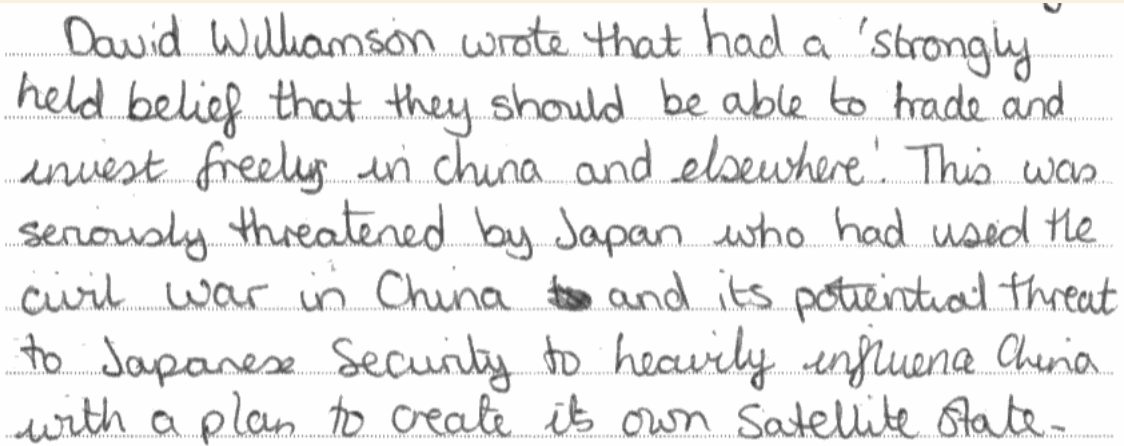 David Williamson wrote that had a 'strongly
held belief that they should be able to trade and
invest freely in china and elsewhere'. This was
seriously threatened by Japan who had used the
civil war in China and its potential threat
to Japanese Security to heavily influence China
with a plan to create its own Satellite State-